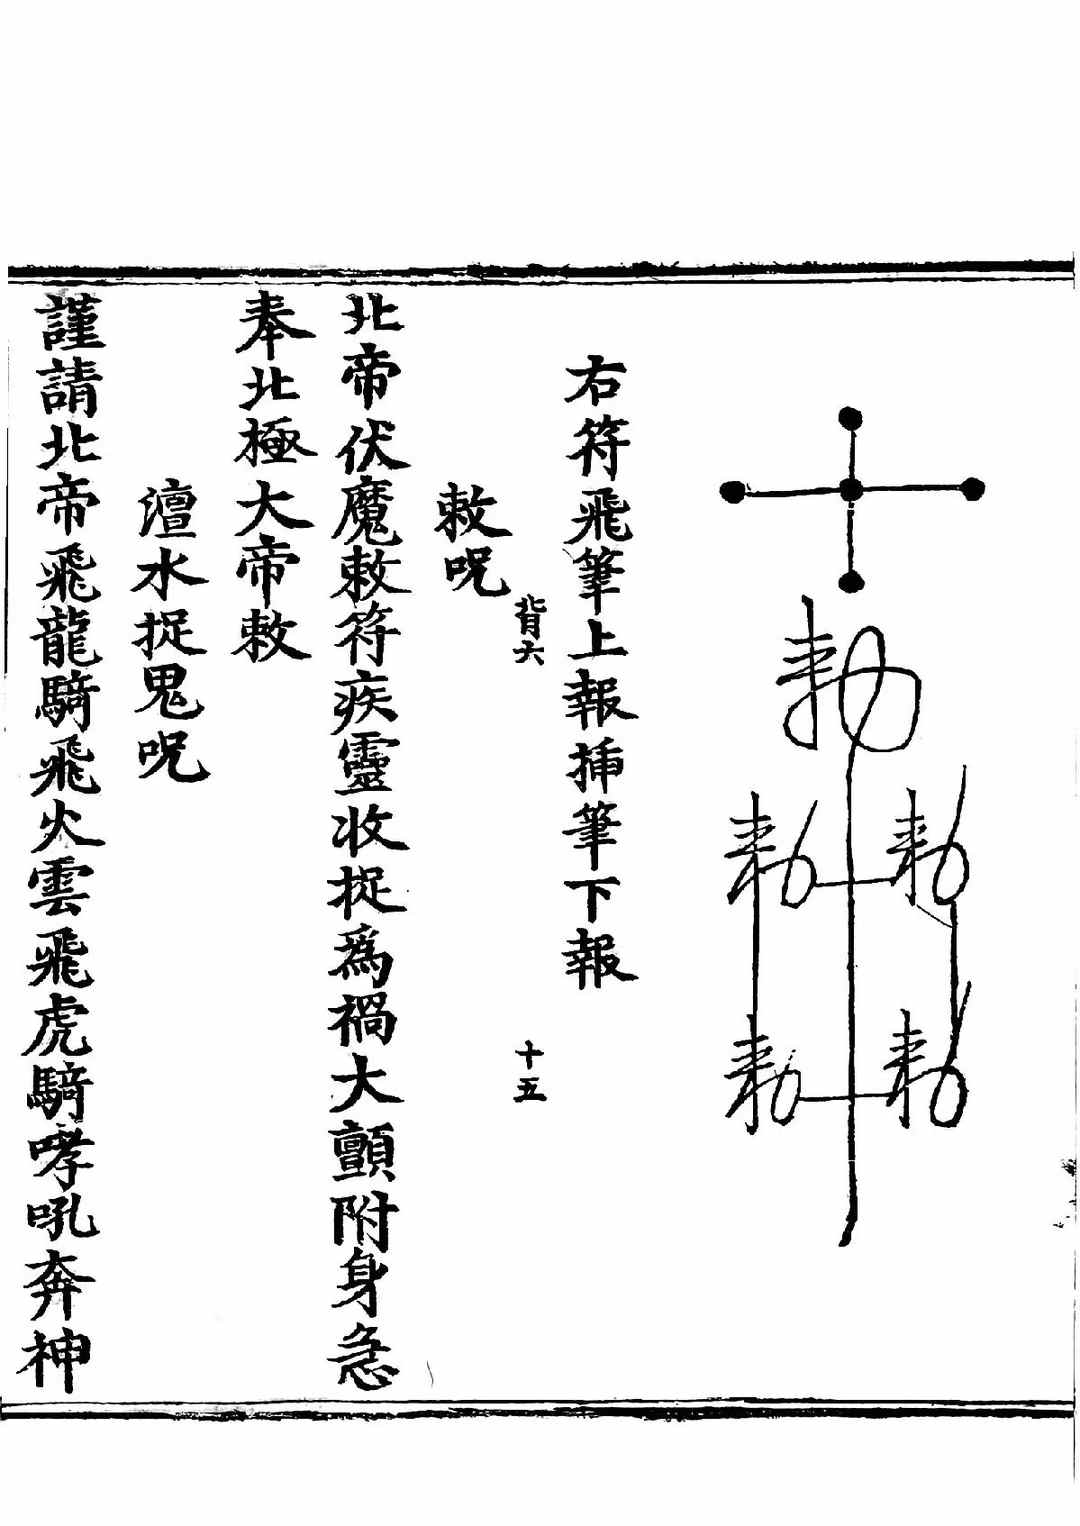 右符飛筆上報揷筆下報
背六
十五
敕呪
北帝伏魔敕符疾靈收捉爲禍大顫附身急
奉北極大帝敕
澶水捉鬼呪
謹請北帝飛龍騎飛火雲飛虎騎哮吼奔神